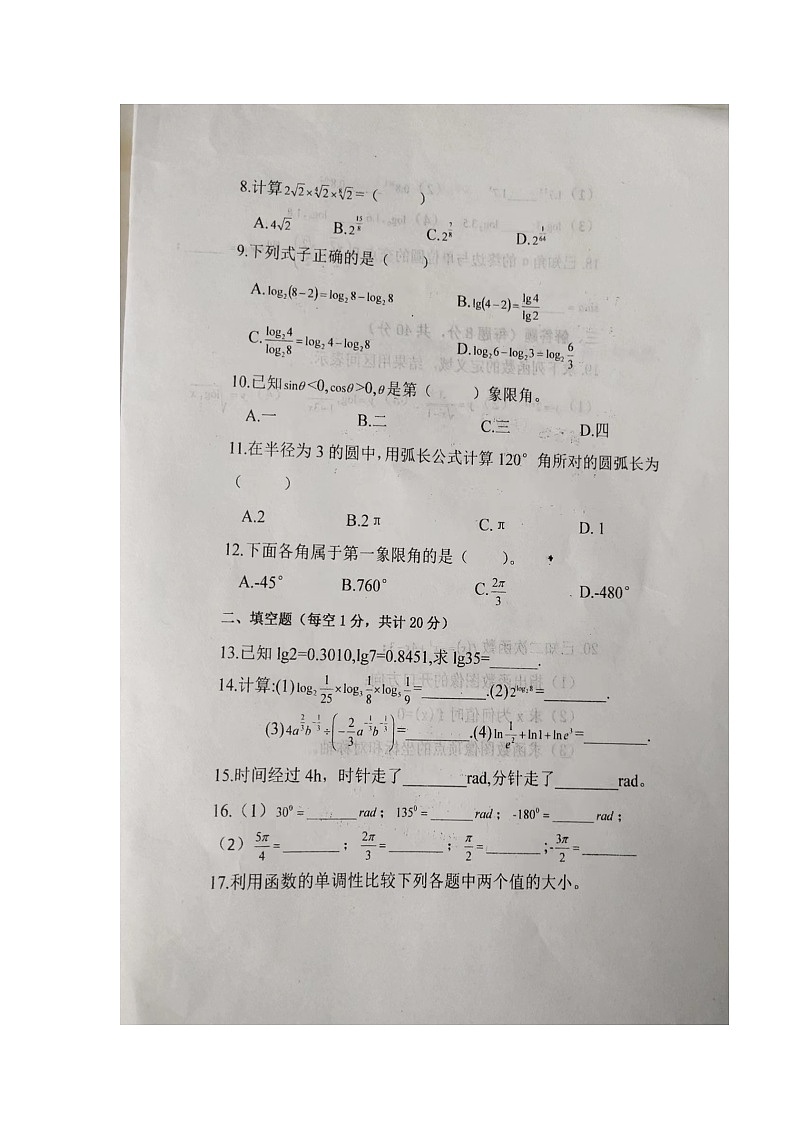 8.计算2√2×⁴√2×⁸√2=(　　)
A.4√2　B.2^(15/8)　C.2^(7/8)　D.2^(1/64)
9.下列式子正确的是（　　）
A.log₂(8−2)=log₂8−log₂8　B.lg(4−2)=lg4/lg2
C.log₂4/log₂8=log₂4−log₂8　D.log₂6−log₂3=log₂(6/3)
10.已知sinθ<0,cosθ>0,θ是第（　　）象限角。
A.一　B.二　C.三　D.四
11.在半径为 3 的圆中,用弧长公式计算 120°角所对的圆弧长为
（　　）
A.2　B.2π　C.π　D. 1
12.下面各角属于第一象限角的是（　　）。
A.-45°　B.760°　C.2π/3　D.-480°
二、填空题（每空 1 分，共计 20 分）
13.已知 lg2=0.3010,lg7=0.8451,求 lg35=_____.
14.计算:(1)log₂(1/25)×log₃(1/8)×log₅(1/9)=_______.(2)2^(log₂8)=_______.
(3)4a^(2/3)b^(-1/3)÷(-2/3 a^(-1/3)b^(-1/3))=_______.(4)ln(1/e²)+ln1+lne³=_______.
15.时间经过 4h，时针走了_______rad,分针走了_______rad。
16.（1）30⁰=_______rad；135⁰=______rad；-180⁰=______rad；
（2）5π/4=_______；2π/3=_______；π/2=_______;-3π/2=_______
17.利用函数的单调性比较下列各题中两个值的大小。